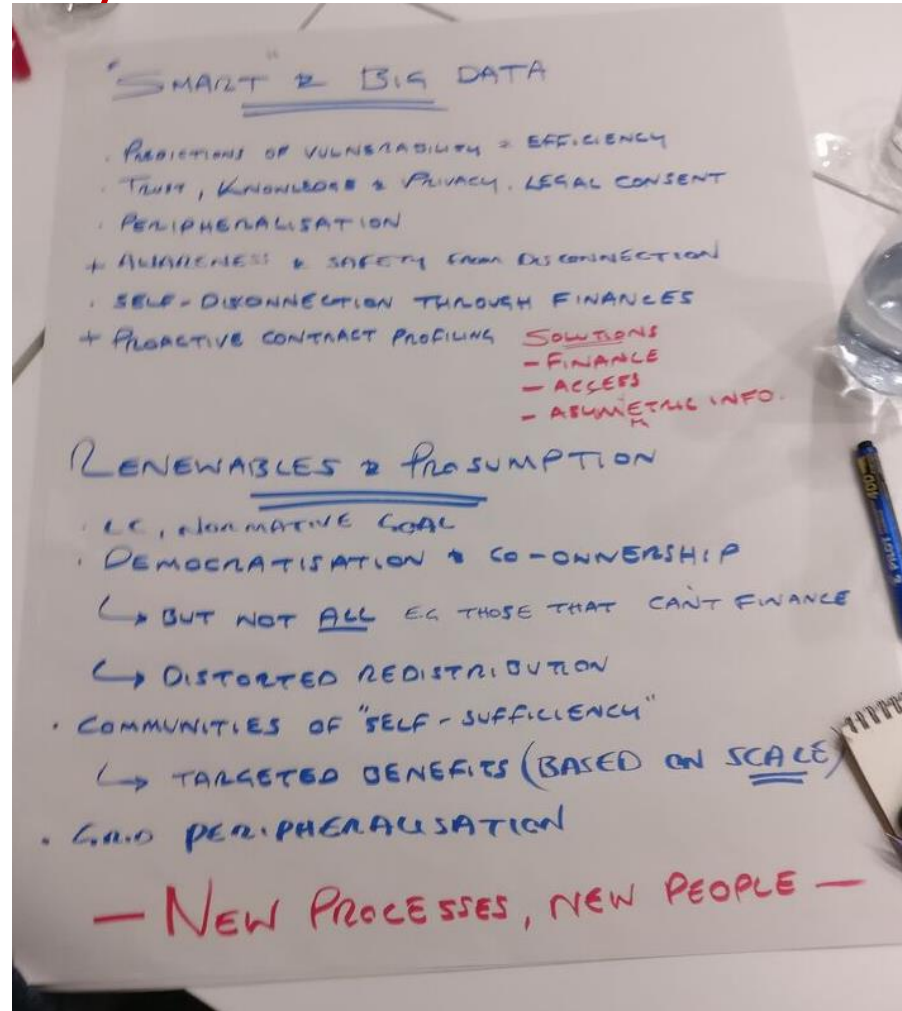 "SMART" & BIG DATA
· PREDICTIONS OF VULNERABILITY & EFFICIENCY
· TRUST, KNOWLEDGE & PRIVACY. LEGAL CONSENT
· PERIPHERALISATION
+ AWARENESS & SAFETY FROM DISCONNECTION
· SELF-DISCONNECTION THROUGH FINANCES
+ PROACTIVE CONTRACT PROFILING
SOLUTIONS
- FINANCE
- ACCESS
- ASUMETRIC INFO.
M
RENEWABLES & PROSUMPTION
· LC, NORMATIVE GOAL
· DEMOCRATISATION & CO-OWNERSHIP
↳ BUT NOT ALL E.G THOSE THAT CAN'T FINANCE
↳ DISTORTED REDISTRIBUTION
· COMMUNITIES OF "SELF-SUFFICIENCY"
↳ TARGETED BENEFITS (BASED ON SCALE)
· GRID PERIPHERALISATION
— NEW PROCESSES, NEW PEOPLE —
PILOT